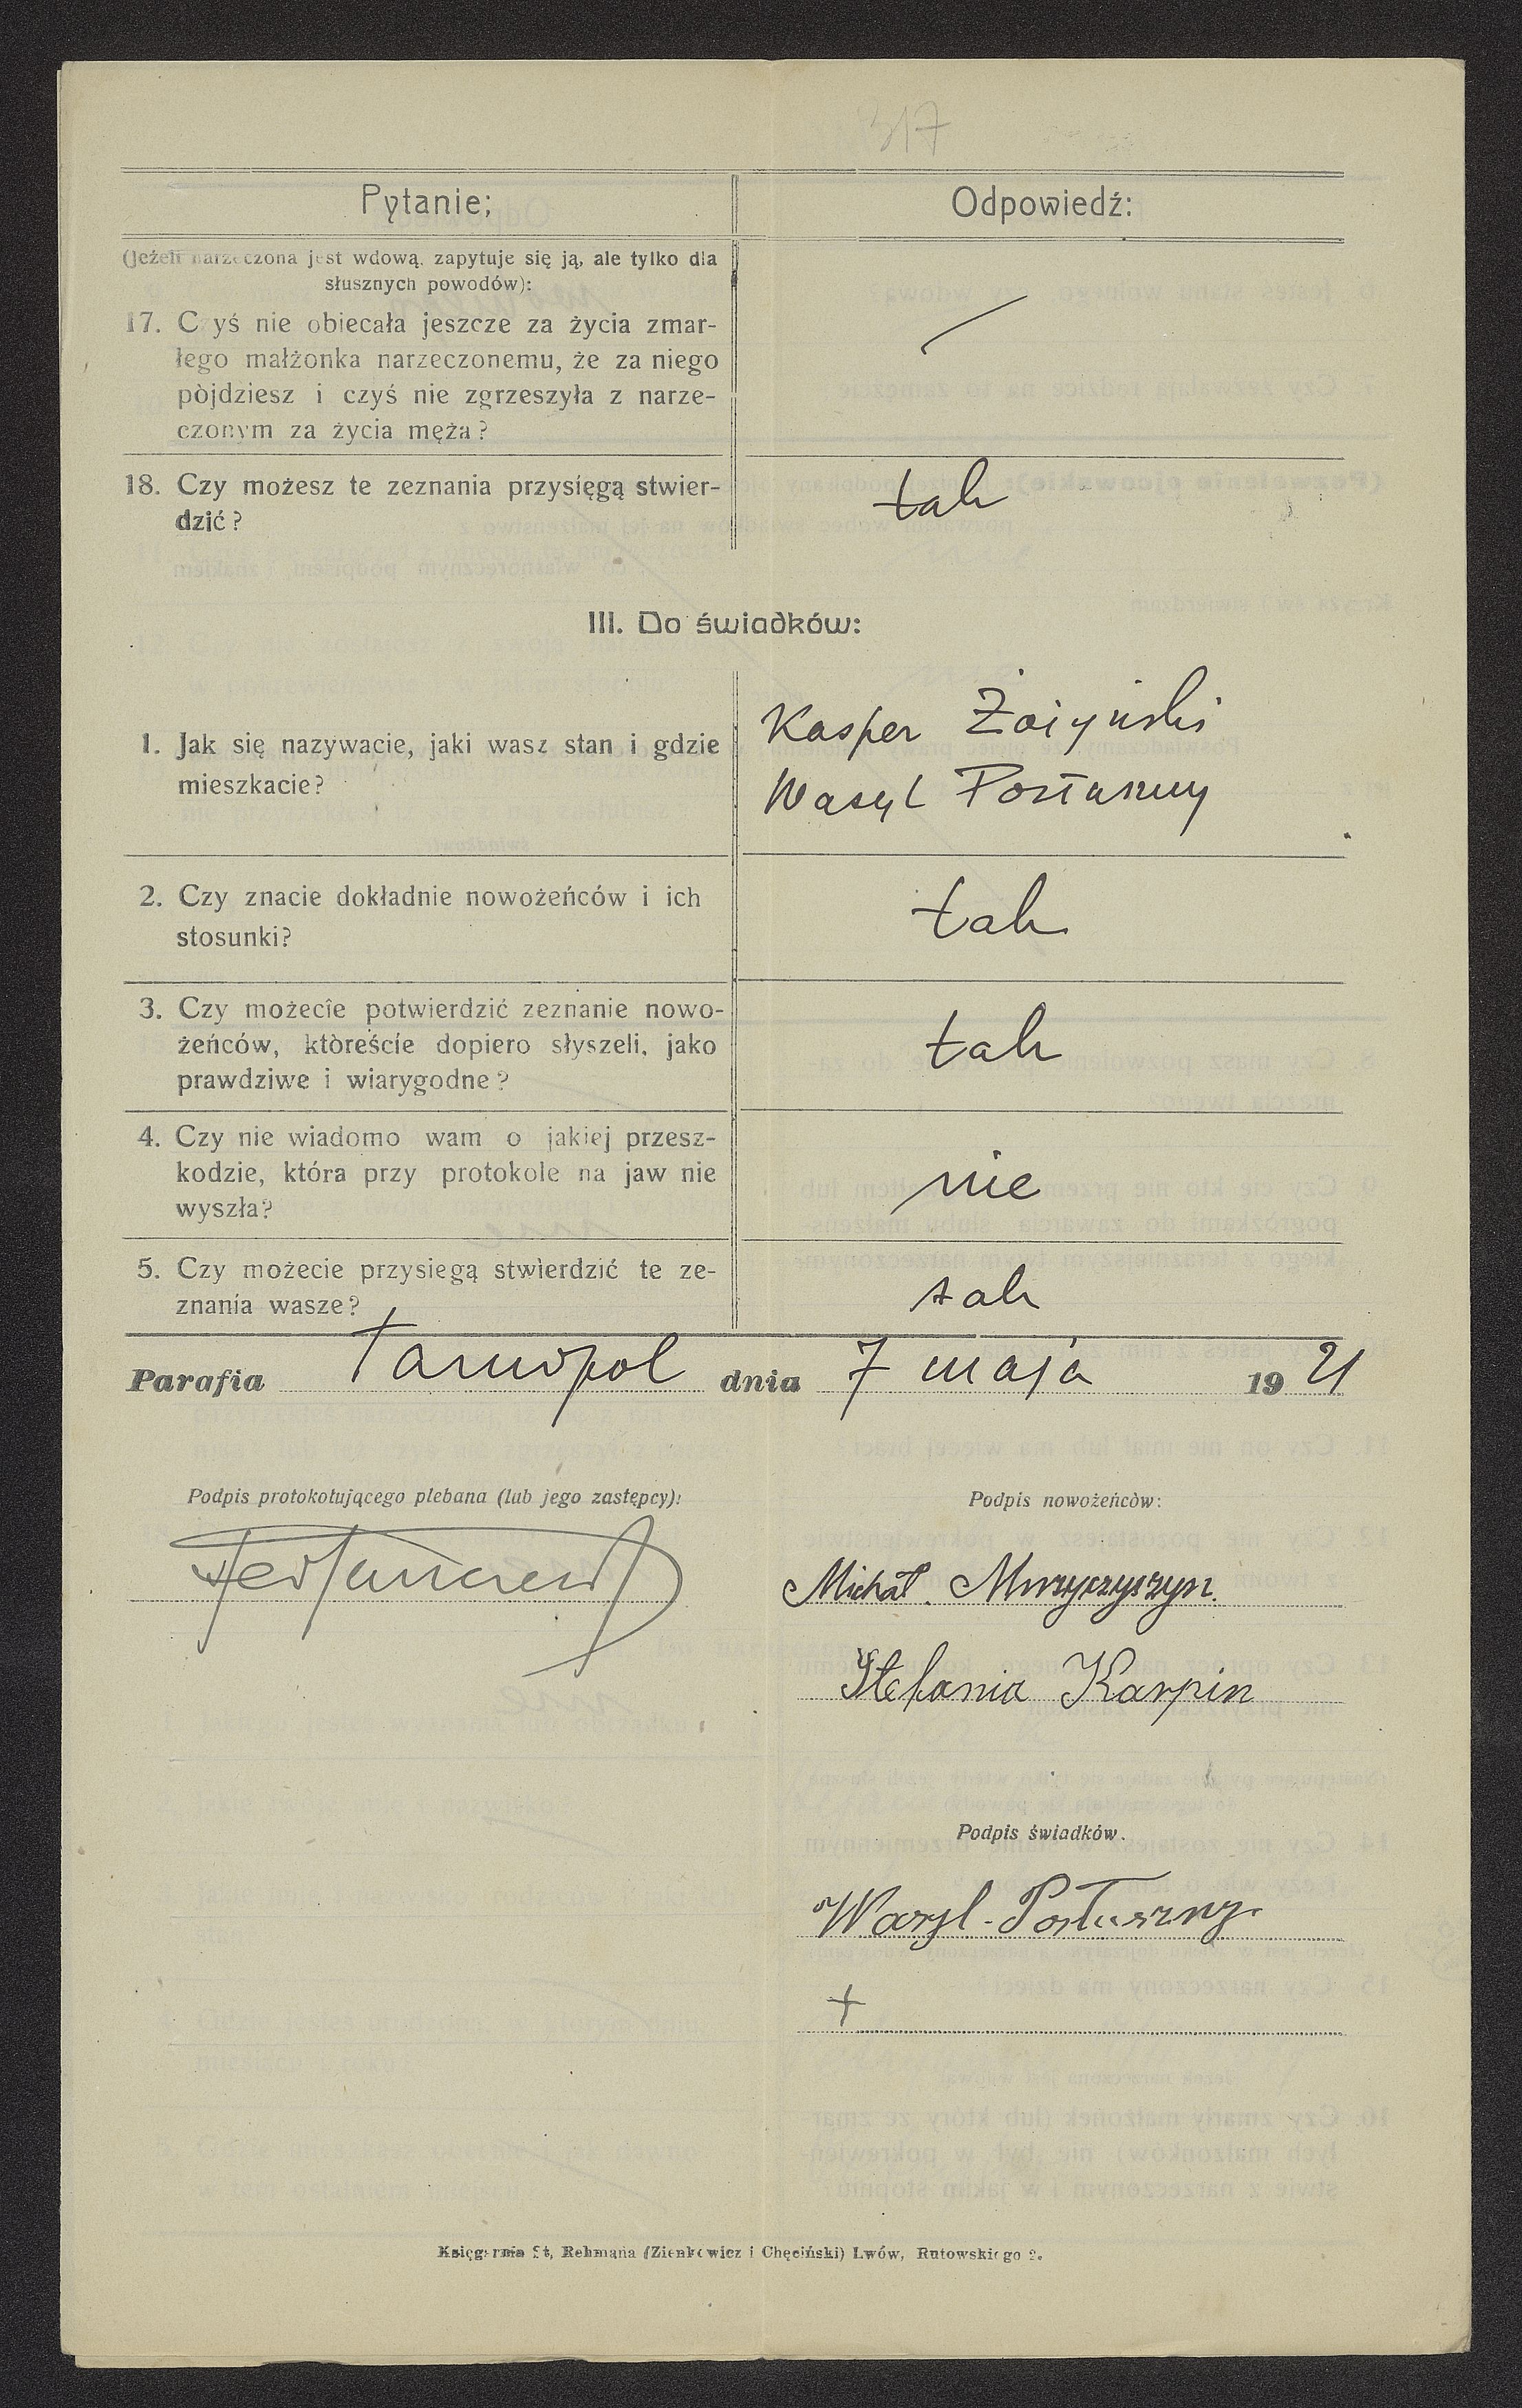 317
Pytanie;
Odpowiedź:
(Jeżeli narzeczona jest wdową, zapytuje się ją, ale tylko dla
słusznych powodów):
17. C yś nie obiecała jeszcze za życia zmar-
łego małżonka narzeczonemu, że za niego
pòjdziesz i czyś nie zgrzeszyła z narze-
czonym za życia męża?
18. Czy możesz te zeznania przysięgą stwier-
dzić?
tak
III. Do świadków:
1. Jak się nazywacie, jaki wasz stan i gdzie
mieszkacie?
Kasper
Wasyl Posłuszny
2. Czy znacie dokładnie nowożeńców i ich
stosunki?
tak
3. Czy możecie potwierdzić zeznanie nowo-
żeńców, któreście dopiero słyszeli, jako
prawdziwe i wiarygodne?
tak
4. Czy nie wiadomo wam o jakiej przesz-
kodzie, która przy protokole na jaw nie
wyszła?
nie
5. Czy możecie przysiegą stwierdzić te ze-
znania wasze?
tak
Parafia Tarnopol dnia 7 maja 1921
Podpis protokołującego plebana (lub jego zastępcy):
Podpis nowożeńców:
Michał
Stefania Karpin
Podpis świadków.
Wasyl Posłuszny
+
Księgarnia St, Rehmana (Zienkowicz i Chęciński) Lwów, Rutowskiego 2.